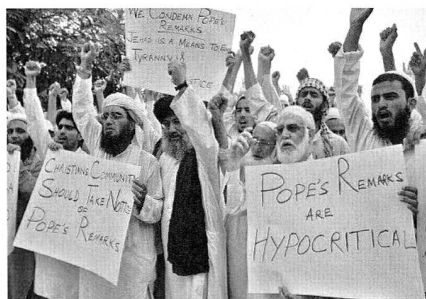 WE CONDEMN POPE'S
REMARKS
JEHAD IS A MEANS TO E
TYRANNY
TICE
CHRISTIANS COMMUNIT
SHOULD TAKE NOTE
OF
POPE'S REMARKS
POPE'S REMARKS
ARE
HYPOCRITICAL